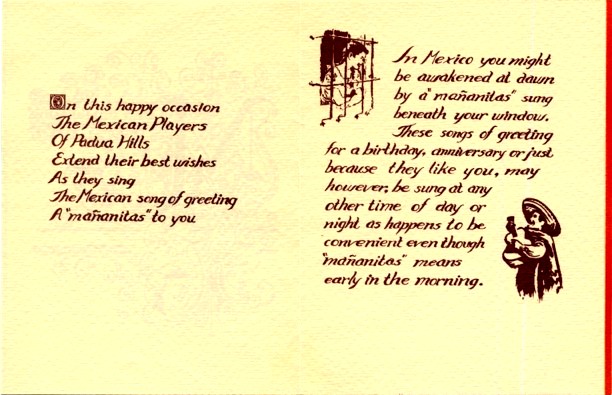 On this happy occasion
The Mexican Players
Of Padua Hills
Extend their best wishes
As they sing
The Mexican song of greeting
A "mañanitas" to you
In Mexico you might
be awakened at dawn
by a "mañanitas" sung
beneath your window.
These songs of greeting
for a birthday, anniversary or just
because they like you, may
however, be sung at any
other time of day or
night as happens to be
convenient even though
"mañanitas" means
early in the morning.